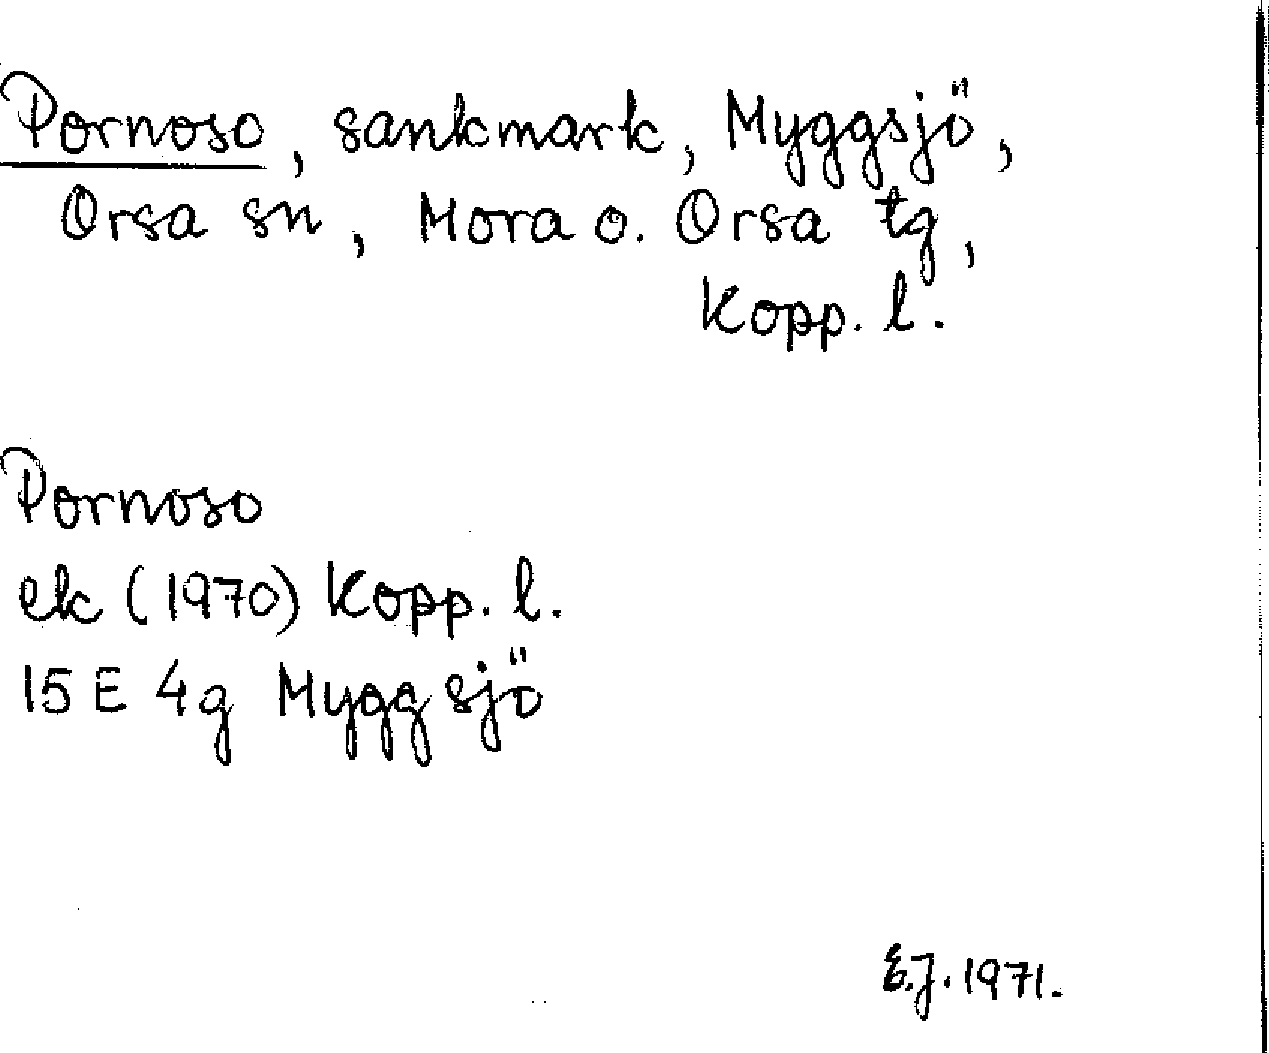 Pornoso, sankmark, Myggsjö,
Orsa sn, Mora o. Orsa tg,
Kopp. l.
Pornoso
ek (1970) Kopp. l.
15 E 4g Myggsjö
E.J. 1971.